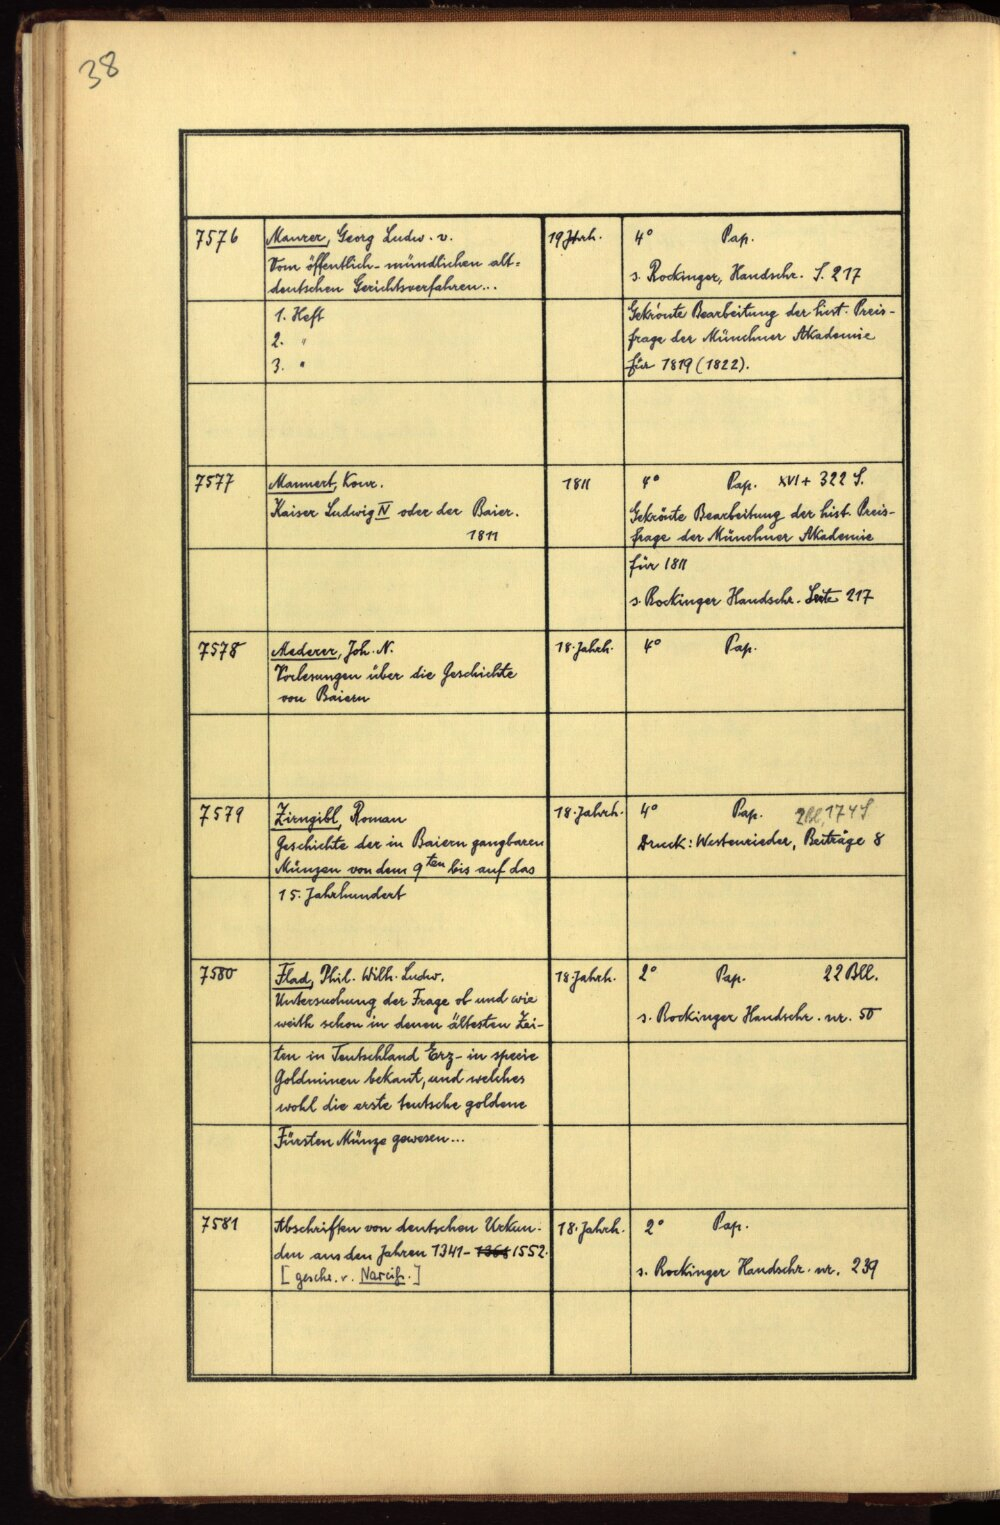 38
7576 Maurer, Georg Ludw. v. 19 Jhrh. 4° Pap.
Vom öffentlich-mündlichen alt= s. Rockinger, Handschr. S. 217
deutschen Gerichtsverfahren...
1. Heft Gekrönte Bearbeitung der hist. Preis-
2. " frage der Münchner Akademie
3. " für 1819 (1822).
7577 Mannert, Konr. 1811 4° Pap. XVI + 322 S.
Kaiser Ludwig IV oder der Baier. Gekrönte Bearbeitung der hist. Preis-
1811 frage der Münchner Akademie
für 1811
s. Rockinger Handschr. Seite 217
7578 Mederer, Joh. N. 18. Jahrh. 4° Pap.
Vorlesungen über die Geschichte
von Baiern
7579 Zirngibl, Roman 18. Jahrh. 4° Pap. 2 Bl, 174 S
Geschichte der in Baiern gangbaren Druck: Westenrieder, Beiträge 8
Münzen von dem 9ten bis auf das
15. Jahrhundert
7580 Flad, Phil. Wilh. Ludw. 18 Jahrh. 2° Pap. 22 Bll.
Untersuchung der Frage ob und wie s. Rockinger Handschr. nr. 50
weith schon in denen ältesten Zei-
ten in Teutschland Erz- in specie
Goldminen bekant, und welches
wohl die erste teutsche goldene
Fürsten Münze gewesen...
7581 Abschriften von deutschen Urkun- 18. Jahrh. 2° Pap.
den aus den Jahren 1341- 1552. s. Rockinger Handschr. nr. 239
[geschr. v. Narciß.]